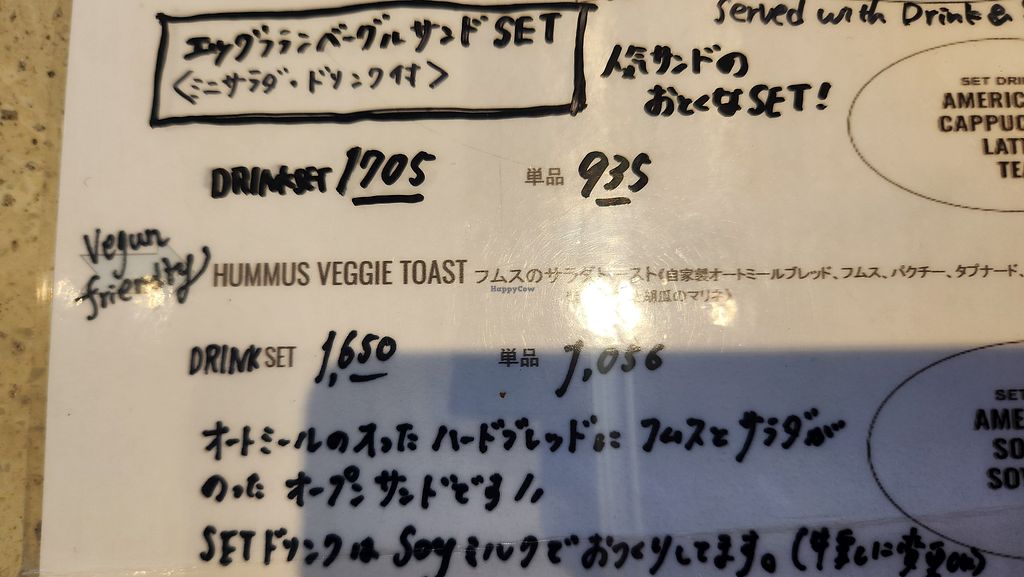 Served with Drink &
エッググラタンベーグルサンドSET
<ミニサラダ・ドリンク付>
人気サンドの
おとくなSET!
SET DRI
AMERIC
CAPPUC
LATT
TEA
DRINKSET 1705 単品 935
Vegan
friendly
HUMMUS VEGGIE TOAST フムスのサラダトースト《自家製オートミールブレッド、フムス、パクチー、タプナード、
胡瓜のマリネ》
HappyCow
DRINK SET 1,650 単品 1,056
SET
AME
SO
SOY
オートミールの入った ハードブレッドに フムスと サラダが
のった オープンサンドです!!
SETドリンクは Soyミルクで おつくりしてます。(牛乳に変更OK)